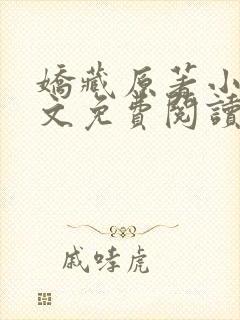 嬌藏原著小
文免費閱讀
戚哮虎